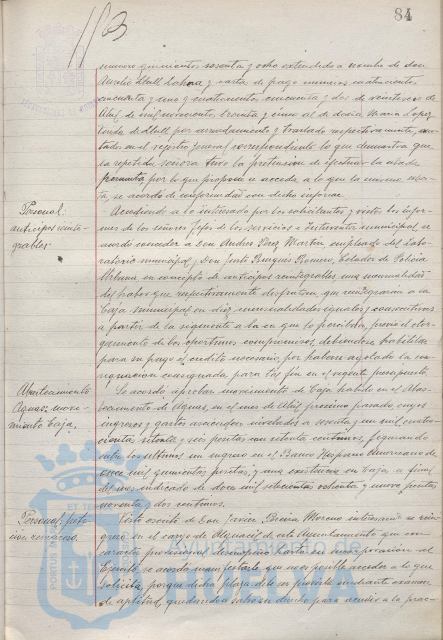 84
número quinientos sesenta y ocho extendido a nombre de don
Aurelio Llull Lahora y carta de pago números cuatrocientos
cincuenta y uno y cuatrocientos cincuenta y dos de veintiseis de
Abril de mil novecientos treinta y cinco al de doña Maria Lopez
Viuda de Llull por arrendamiento y traslado respectivamente, ano-
tados en el registro general correspondiente lo que demuestra que
la repetida señora tuvo la pretensión de efectuar la citada
permuta, por lo que propone se acceda a lo que la misma solici-
ta, se acordó de conformidad con dicho informe.
Personal:
anticipos reinte-
grables.
Accediendo a lo interesado por los solicitantes y vistos los infor-
mes de los señores Jefes de los servicios e Interventor municipal, se
acordó conceder a Don Andres Perez Martin empleado del Labo-
ratorio municipal y Don Justo Romero, Celador de Policía
Urbana, en concepto de anticipos reintegrables una mensualidad
del haber que respectivamente disfrutan, que reintegrarán a la
Caja municipal en diez mensualidades iguales y consecutivas
a partir de la siguiente a la en que lo perciban, previo el otor-
gamiento de los oportunos compromisos, debiendose habilitar
para su pago el crédito necesario por haberse agotado la con-
signación consignada para tal fin en el vigente presupuesto.
Abastecimiento
Aguas: movi-
miento Caja.
Se acordó aprobar movimiento de Caja habido en el Abas-
tecimiento de Aguas, en el mes de Abril proximo pasado, cuyos
ingresos y gastos ascienden nivelados a sesenta y un mil cuatro-
cientas setenta y seis pesetas con setenta centimos, figurando
entre los ultimos un ingreso en el Banco Hispano Americano de
once mil quinientas pesetas, y una existencia en Caja a fines
del mes indicado de doce mil setecientas ochenta y nueve pesetas
noventa y dos centimos.
Personal, peti-
ción reingreso.
Visto escrito de Don Javier Moreno interesando se rein-
grese en el cargo de Alguacil de este Ayuntamiento que con
caracter provisional desempeñó hasta su incorporación al
Ejército, se acordó manifestarle que no es posible acceder a lo que
solicita, porque dicha plaza debe ser provista mediante examen
de aptitud, quedandole a salvo su derecho para acudir a la prac-